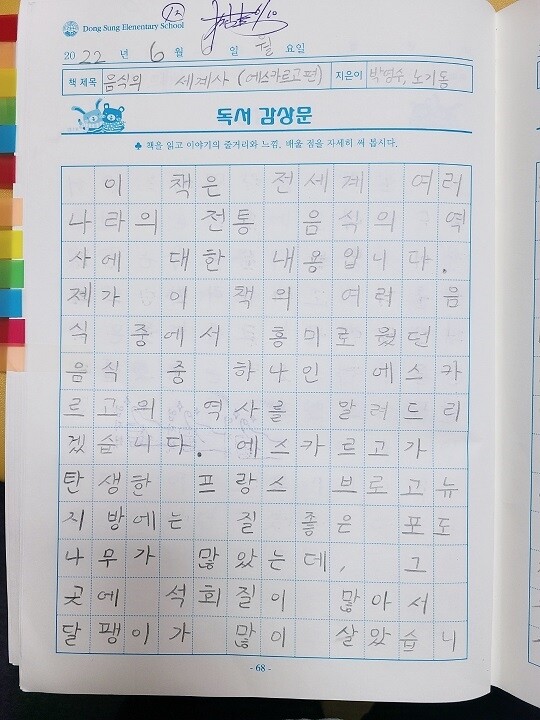 Dong Sung Elementary School
2022 년 6 월 6 일 월 요일
책 제목 음식의 세계사 (에스카르고편) 지은이 박영수, 노기동
독서 감상문
♣ 책을 읽고 이야기의 줄거리와 느낌, 배울 점을 자세히 써 봅시다.
이 책은 전세계 여러
나라의 전통 음식의 역
사에 대한 내용입니다.
제가 이 책의 여러 음
식 중에서 흥미로웠던
음식 중 하나인 에스카
르고의 역사를 알려드리
겠습니다. 에스카르고가
탄생한 프랑스 브로고뉴
지방에는 질 좋은 포도
나무가 많았는데, 그
곳에 석회질이 많아서
달팽이가 많이 살았습니
- 68 -